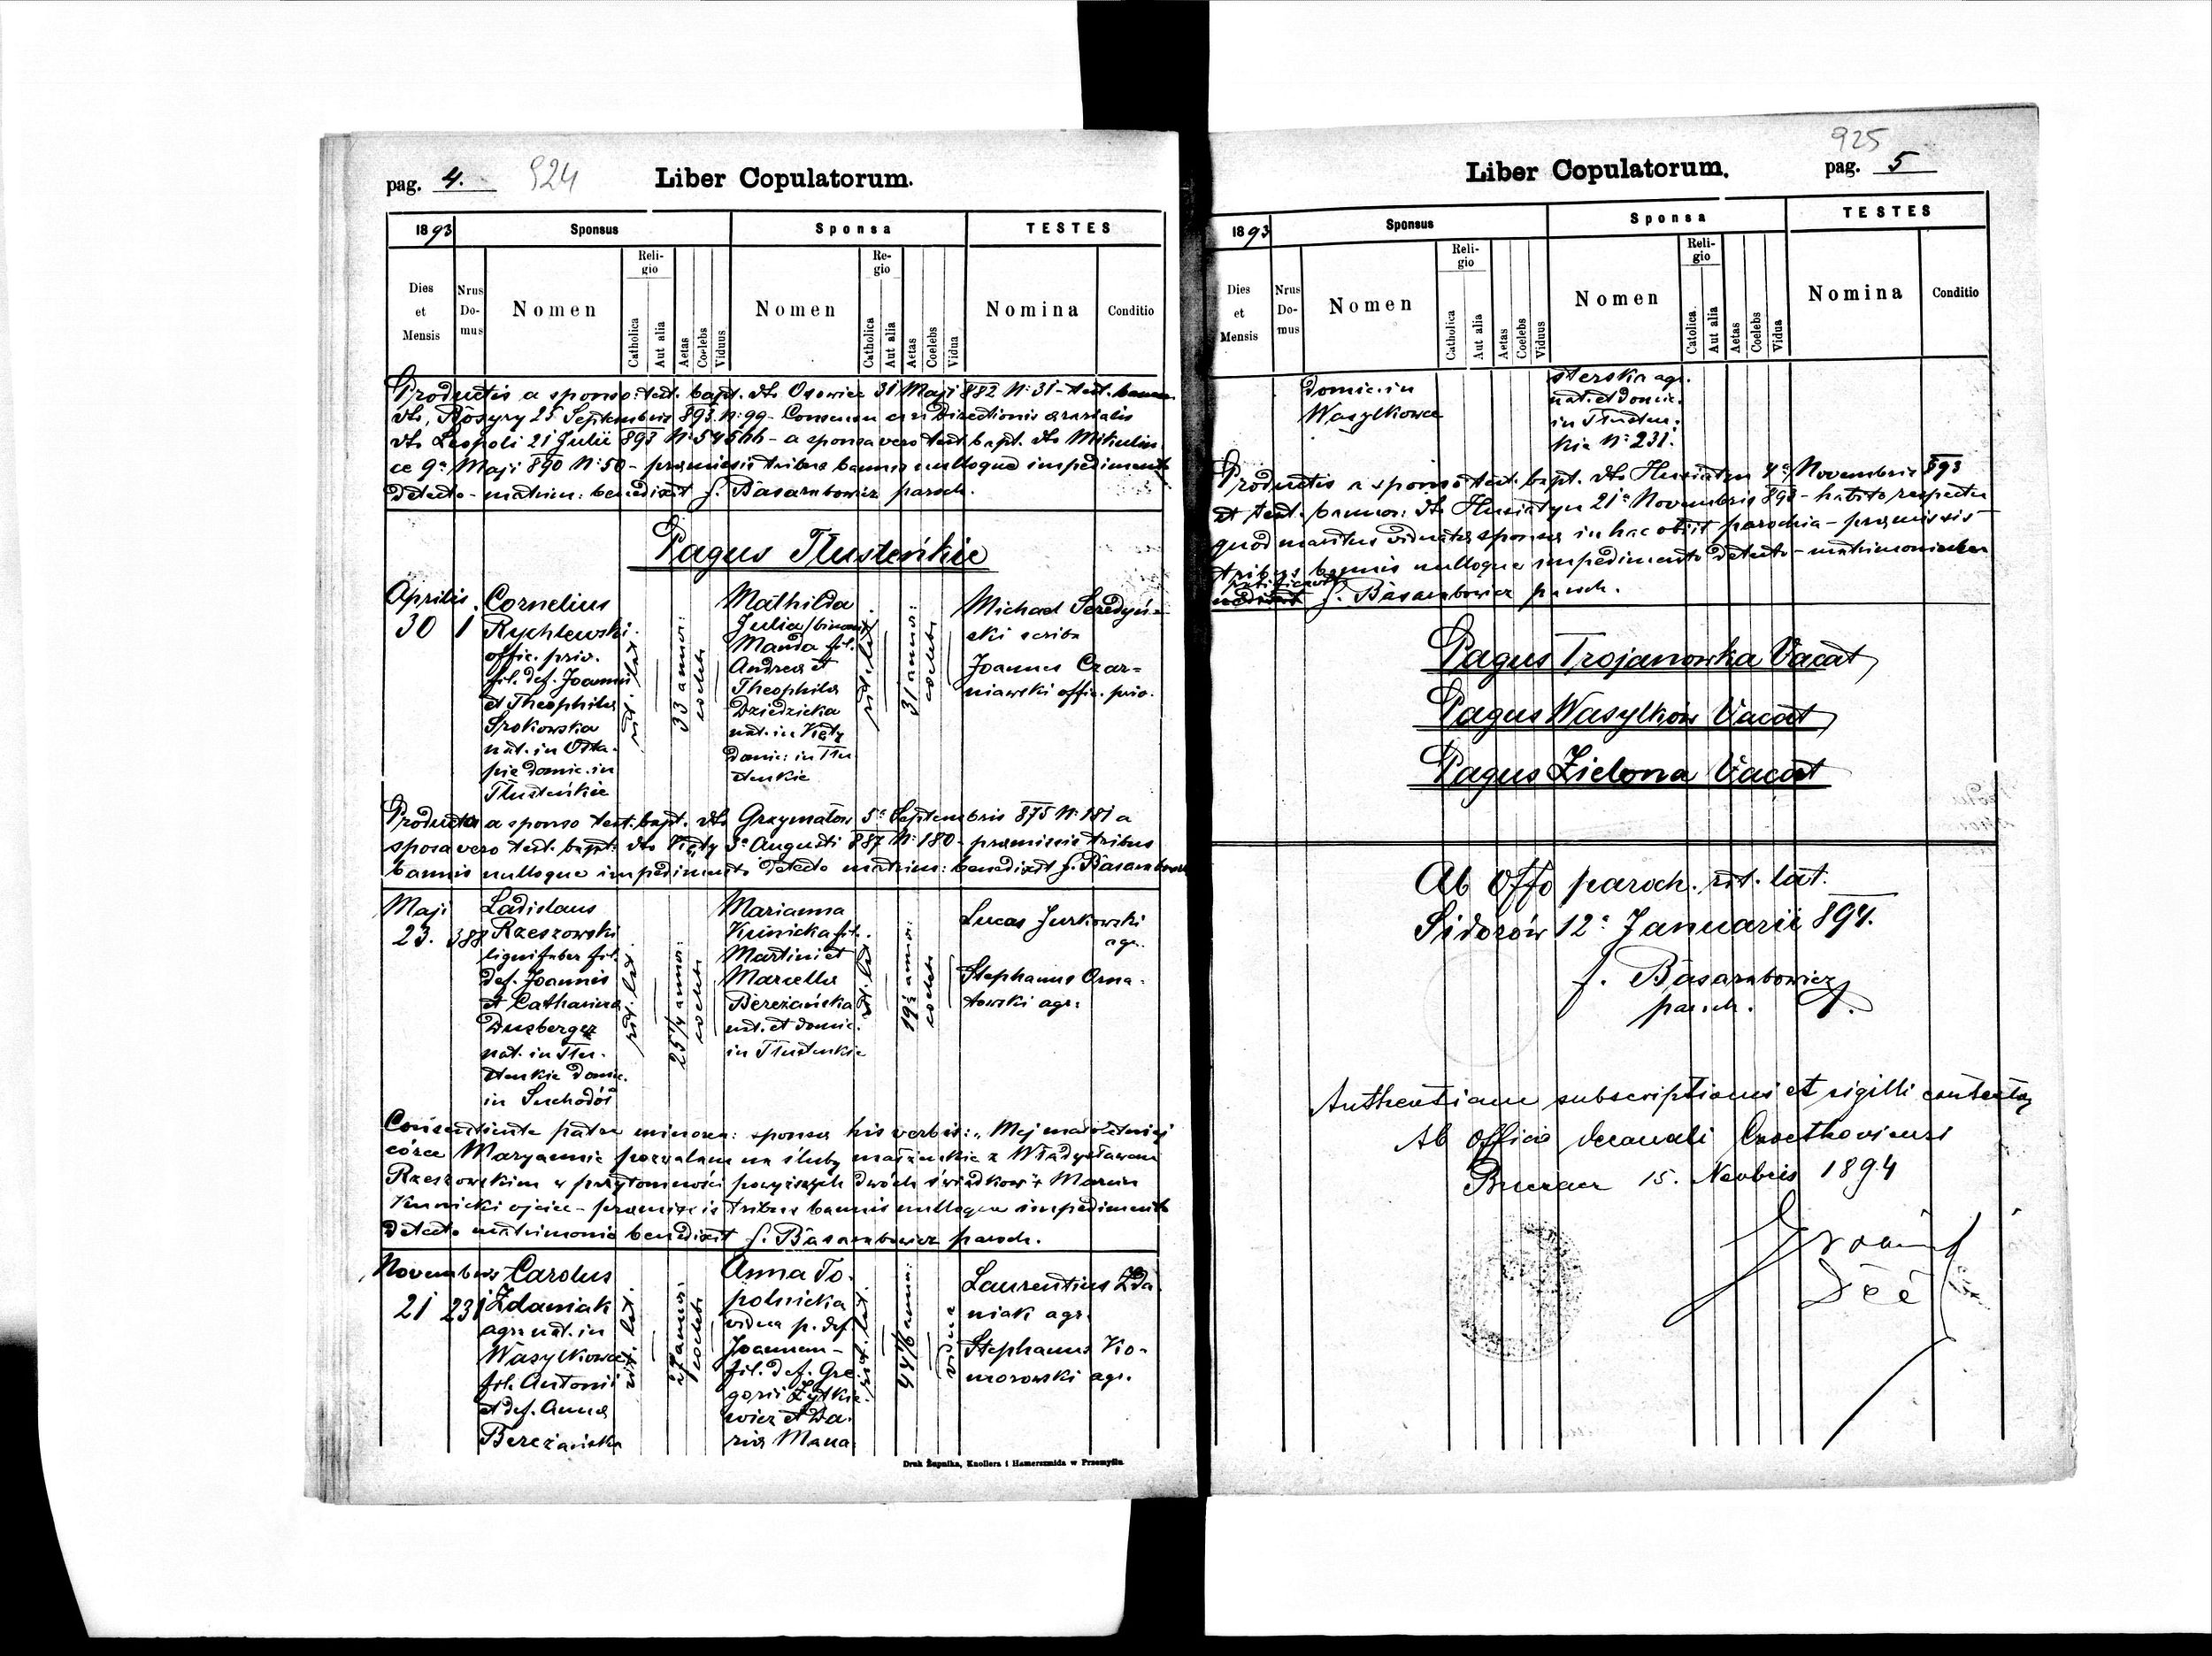 pag. 4.
924
Liber Copulatorum.
1893
Sponsus
Sponsa
TESTES
Dies et Mensis
Nrus Domus
Nomen
Religio
Catholica
Aut alia
Aetas
Coelebs
Viduus
Nomen
Regio
Catholica
Aut alia
Aetas
Coelebs
Vidua
Nomina
Conditio
Productis a sponso: test. bapt. dto Osowice 31 Maji 882 N: 31 - test.
dto, Bosyry 25 Septembris 893. N: 99 - Directionis
dto Leopoli 21 Julii 893 - a sponsa vero test. bapt. dto Mikulin
ce 9a Maji 890 N: 50 - praemissis tribus bannis nulloque impedimento
detecto - matrim: benedixit J. Basarabowicz paroch.
Pagus Tłusteńkie
Aprilis
30
1
Cornelius
Rychlewski
offic. priv.
fil. def. Joannis
et Theophila
Srokowska
nat. in Osta-
pie domic. in
Tłusteńkie
rit. lat.
33 annor:
coelebs
Mathilda
Julia
Manda fil.
Andrea et
Theophila
Dziedzicka
nat. in Kęty
domic: in Tłu
stenkie
rit. lat.
31 annor:
coelebs
Michael Seredyń-
ski scriba
Joannes Czar-
niawski offic. priv.
a sponso test. bapt. dto Grzymałów 5a Septembris 875 N: 181 a
sposa vero test. bapt: dto Kęty 3a Augusti 887 N: 180 - praemissis tribus
bannis nulloque impedimento detecto matrim: benedixit J. Basarabowicz
Maji
23.
388
Ladislaus
Rzeszowski
lignifaber fil.
def. Joannis
et Catharina
nat. in Tłu-
stenkie domic.
in Suchodół
rit. lat.
25 1/4 annor:
coelebs
Marianna
Kunicka fil.
Martini et
Marcella
Bereżańska
nat. et domic.
in Tłustenkie
rit. lat
19 1/2 annor:
coelebs
Lucas Jurkowski
agr.
Stephanus Orna-
towski agr:
Consentiente patre minoren: sponsa his verbis: „Mej małoletniej
córce Maryannie pozwalam na śluby małżeńskie z Władysławem
Rzeszowskim w przytomności powyższych dwóch świadków + Marcin
Kunicki ojciec - praemissis tribus bannis nulloque impedimento
detecto matrimonio benedixit J. Basarabowicz paroch.
Novembris
21
231
Carolus
Zdaniak
agr: nat. in
Wasylkowce
fil. Antonii
et def. Anna
Bereżańska
rit. lat.
annor:
coelebs
Anna To-
polnicka
vidua p. def.
Joannem -
fil. def. Gre
gorii Żytkie-
wicz et Da-
ria Mana
rit. lat.
44 1/6 annor:
vidua
Laurentius Zda
niak agr.
Stephanus Ko-
morowski agr.
Druk Żupnika, Knollera i Hamerszmida w Przemyślu
925
Liber Copulatorum.
pag. 5
1893
Sponsus
Sponsa
TESTES
Dies et Mensis
Nrus Domus
Nomen
Religio
Catholica
Aut alia
Aetas
Coelebs
Viduus
Nomen
Religio
Catolica.
Aut alia
Aetas
Coelebs
Vidua
Nomina
Conditio
domic. in
Wasylkowce
sterska agr.
nat. et domic.
in Tłusten-
kie N: 231.
Productis a sponso test. bapt. dto Husiatyn 4a Novembris 893
et test. bannor: dto Husiatyn 21a Novembris 893 - habito respectu
quod maritus viduatae sponsae in hac obiit parochia - praemissis
tribus bannis nulloque impedimento detecto - matrimonium
J. Basarabowicz paroch.
Pagus Trojanowka Vacat
Pagus Wasylków Vacat
Pagus Zielona Vacat
Ab Offo paroch. rit. lat.
Sidorów 12a Januarii 894.
J. Basarabowicz
paroch.
Authentiam subscriptionis et sigilli
Ab Officio decanali Czortkoviensi
15. Novbris 1894